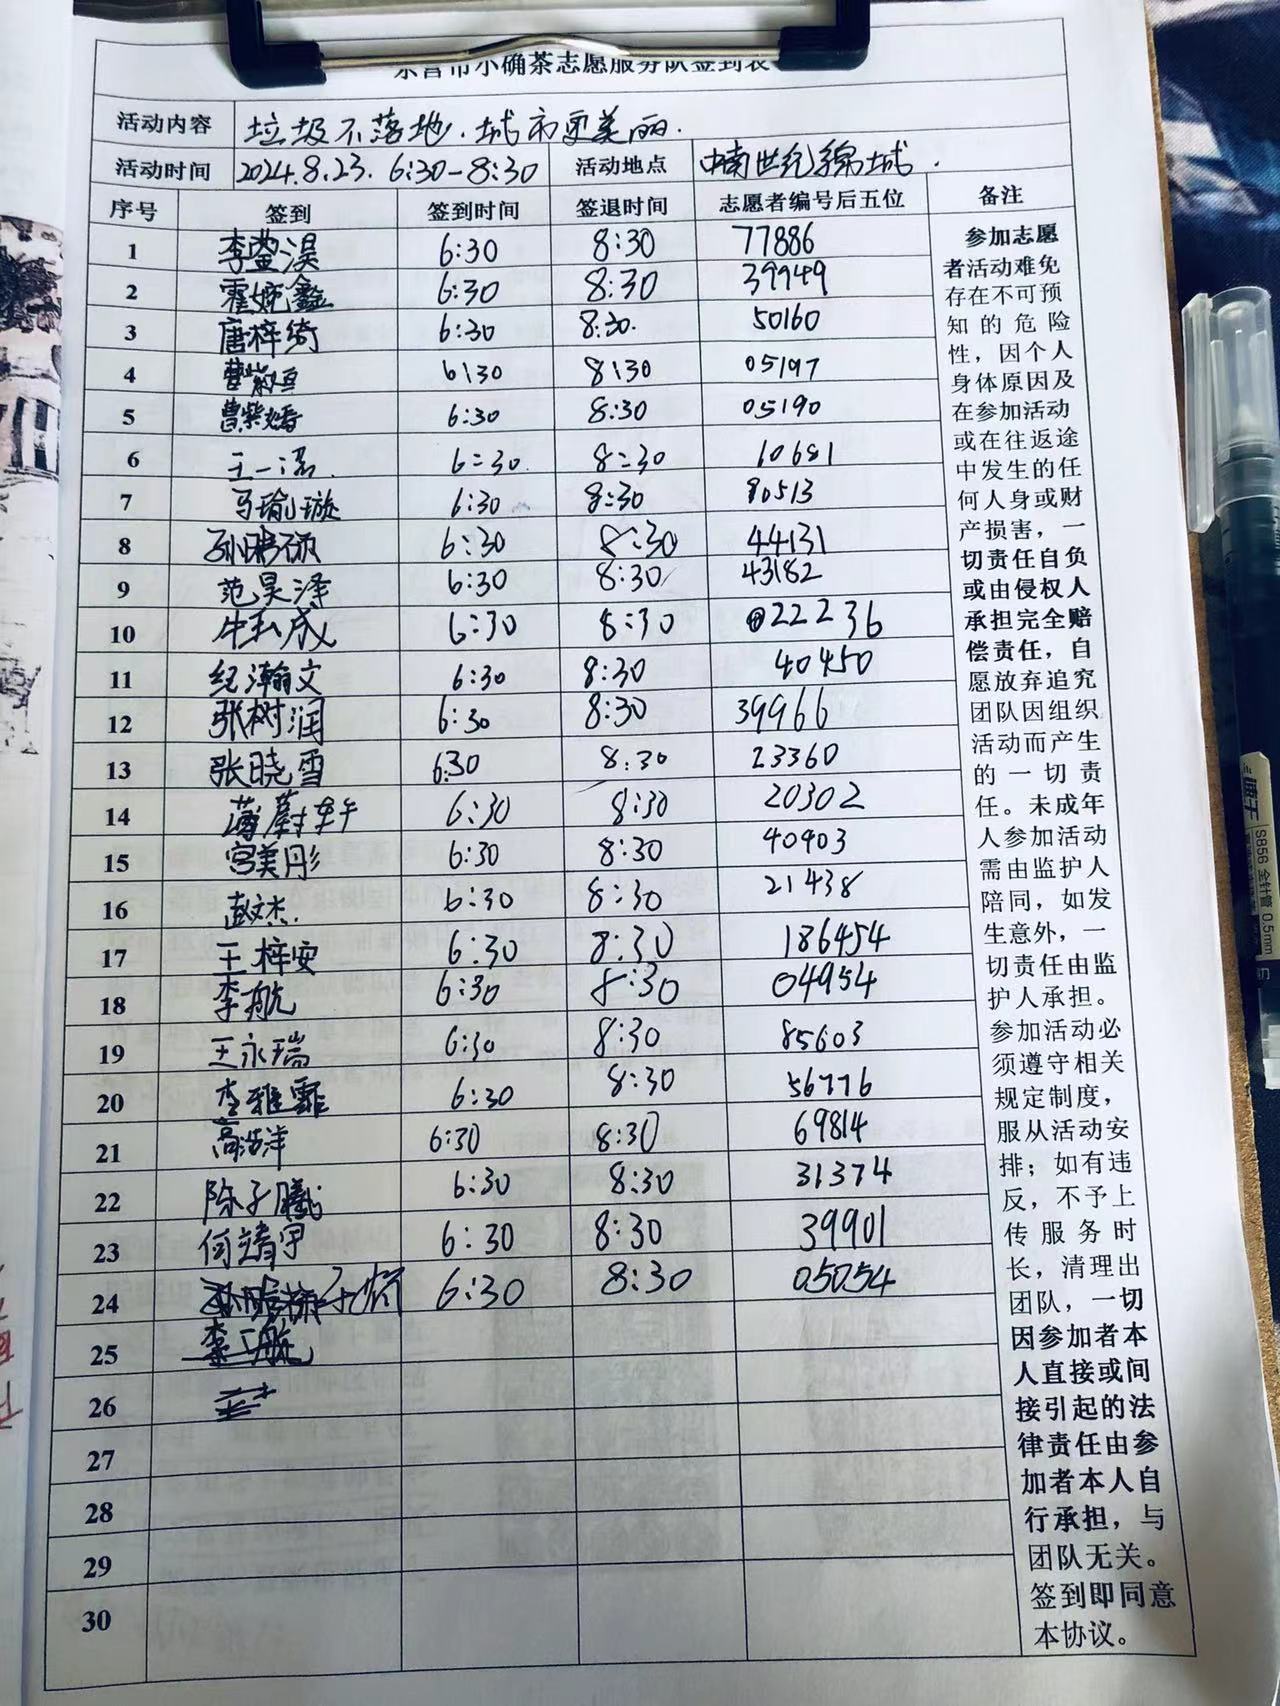 东营市小确茶志愿服务队签到表
活动内容 垃圾不落地.城市更美丽.
活动时间 2024.8.23. 6:30-8:30 活动地点 中南世纪锦城.
序号 签到 签到时间 签退时间 志愿者编号后五位 备注
1 李莹淏 6:30 8:30 77886
2 霍婉鑫 6:30 8:30 39949
3 唐梓绮 6:30 8:30. 50160
4 曹紫 6:30 8:30 05197
5 曹紫嫣 6:30 8:30 05190
6 王一 6:30. 8:30 10681
7 马瑜璇 6:30 8:30 80513
8 孙 6:30 8:30 44131
9 范昊泽 6:30 8:30 43182
10 牛弘成 6:30 8:30 22236
11 纪瀚文 6:30 8:30 40450
12 张树润 6:30 8:30 39966
13 张晓雪 6:30 8:30 23360
14 薄蔚 6:30 8:30 20302
15 宫美彤 6:30 8:30 40903
16 彭文杰. 6:30 8:30 21438
17 王梓安 6:30 8:30 186454
18 李航 6:30 8:30 04954
19 王永瑞 6:30 8:30 85603
20 李雅霏 6:30 8:30 56776
21 高浩洋 6:30 8:30 69814
22 陈子曦 6:30 8:30 31374
23 何靖宇 6:30 8:30 39901
24 6:30 8:30 05054
25
26
27
28
29
30
参加志愿
者活动难免
存在不可预
知的危险
性，因个人
身体原因及
在参加活动
或在往返途
中发生的任
何人身或财
产损害，一
切责任自负
或由侵权人
承担完全赔
偿责任，自
愿放弃追究
团队因组织
活动而产生
的一切责
任。未成年
人参加活动
需由监护人
陪同，如发
生意外，一
切责任由监
护人承担。
参加活动必
须遵守相关
规定制度，
服从活动安
排；如有违
反，不予上
传服务时
长，清理出
团队，一切
因参加者本
人直接或间
接引起的法
律责任由参
加者本人自
行承担，与
团队无关。
签到即同意
本协议。
SB56 全针管 0.5mm